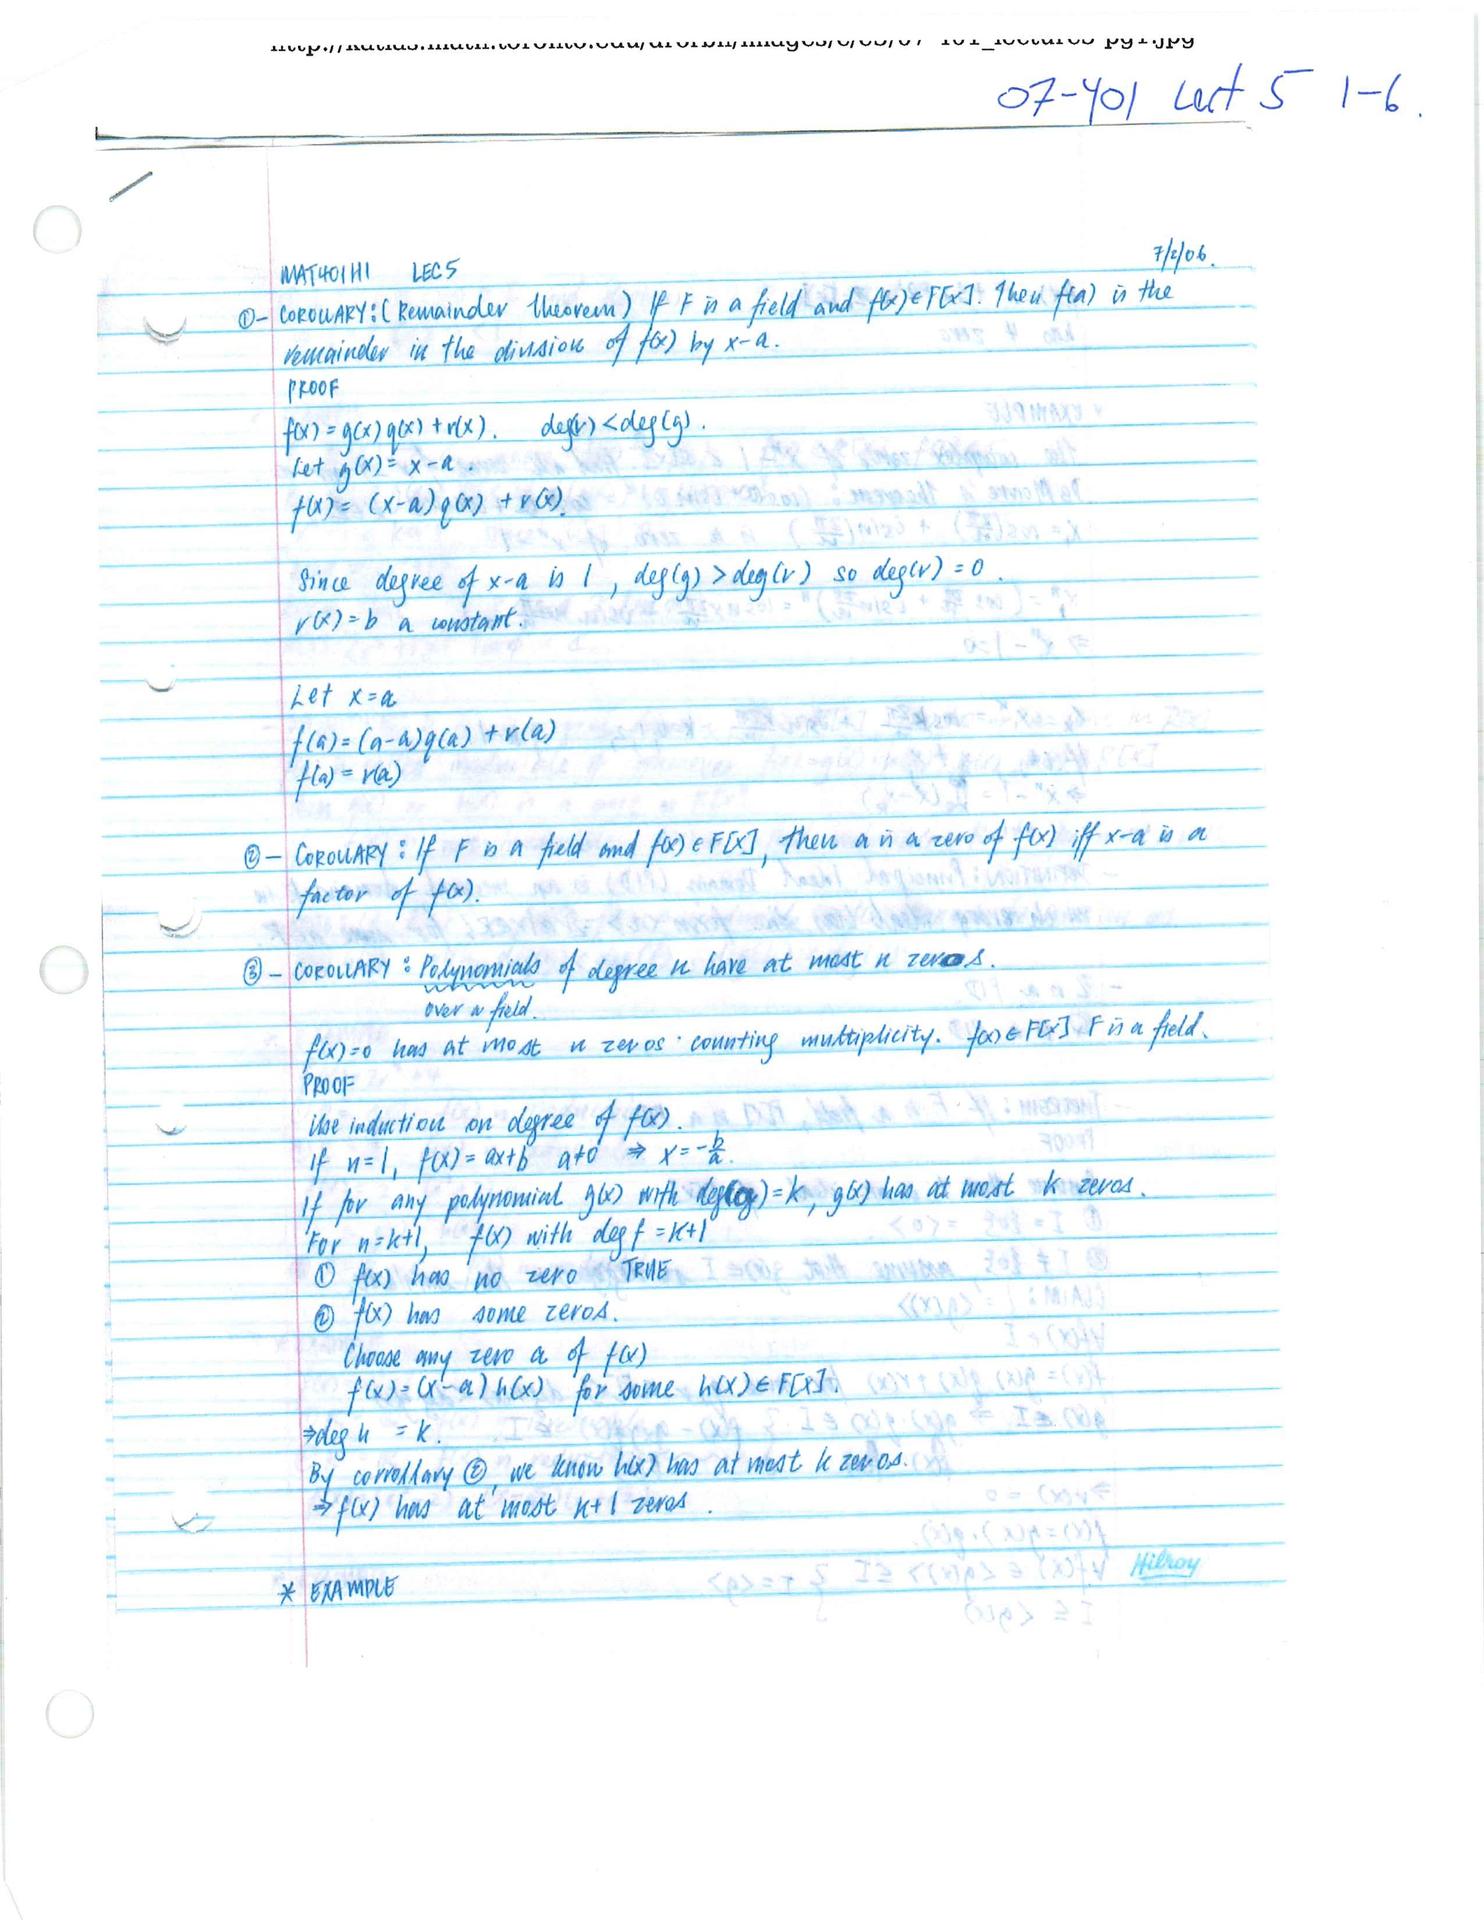 07-401 Lect 5 1-6.
MAT401H1 LEC5 7/2/06.
①- COROLLARY: (Remainder theorem) If F is a field and f(x) ∈ F[x]. Then f(a) is the
remainder in the division of f(x) by x-a.
PROOF
f(x) = g(x)q(x) + r(x). deg(r) < deg(g).
Let g(x) = x-a.
f(x) = (x-a)q(x) + r(x).
Since degree of x-a is 1, deg(g) > deg(r) so deg(r) = 0.
r(x) = b a constant.
Let x = a
f(a) = (a-a)q(a) + r(a)
f(a) = r(a)
②- COROLLARY: If F is a field and f(x) ∈ F[x], then a is a zero of f(x) iff x-a is a
factor of f(x).
③- COROLLARY: Polynomials of degree n have at most n zeros.
over a field.
f(x)=0 has at most n zeros counting multiplicity. f(x) ∈ F[x] F is a field.
PROOF
Use induction on degree of f(x).
If n=1, f(x) = ax+b a≠0 ⇒ x = -b/a.
If for any polynomial g(x) with deg(g)=k, g(x) has at most k zeros.
For n=k+1, f(x) with deg f = k+1
① f(x) has no zero TRUE
② f(x) has some zeros.
Choose any zero a of f(x)
f(x) = (x-a)h(x) for some h(x) ∈ F[x].
⇒ deg h = k.
By corrollary ②, we know h(x) has at most k zeros.
⇒ f(x) has at most k+1 zeros.
Hilroy
* EXAMPLE